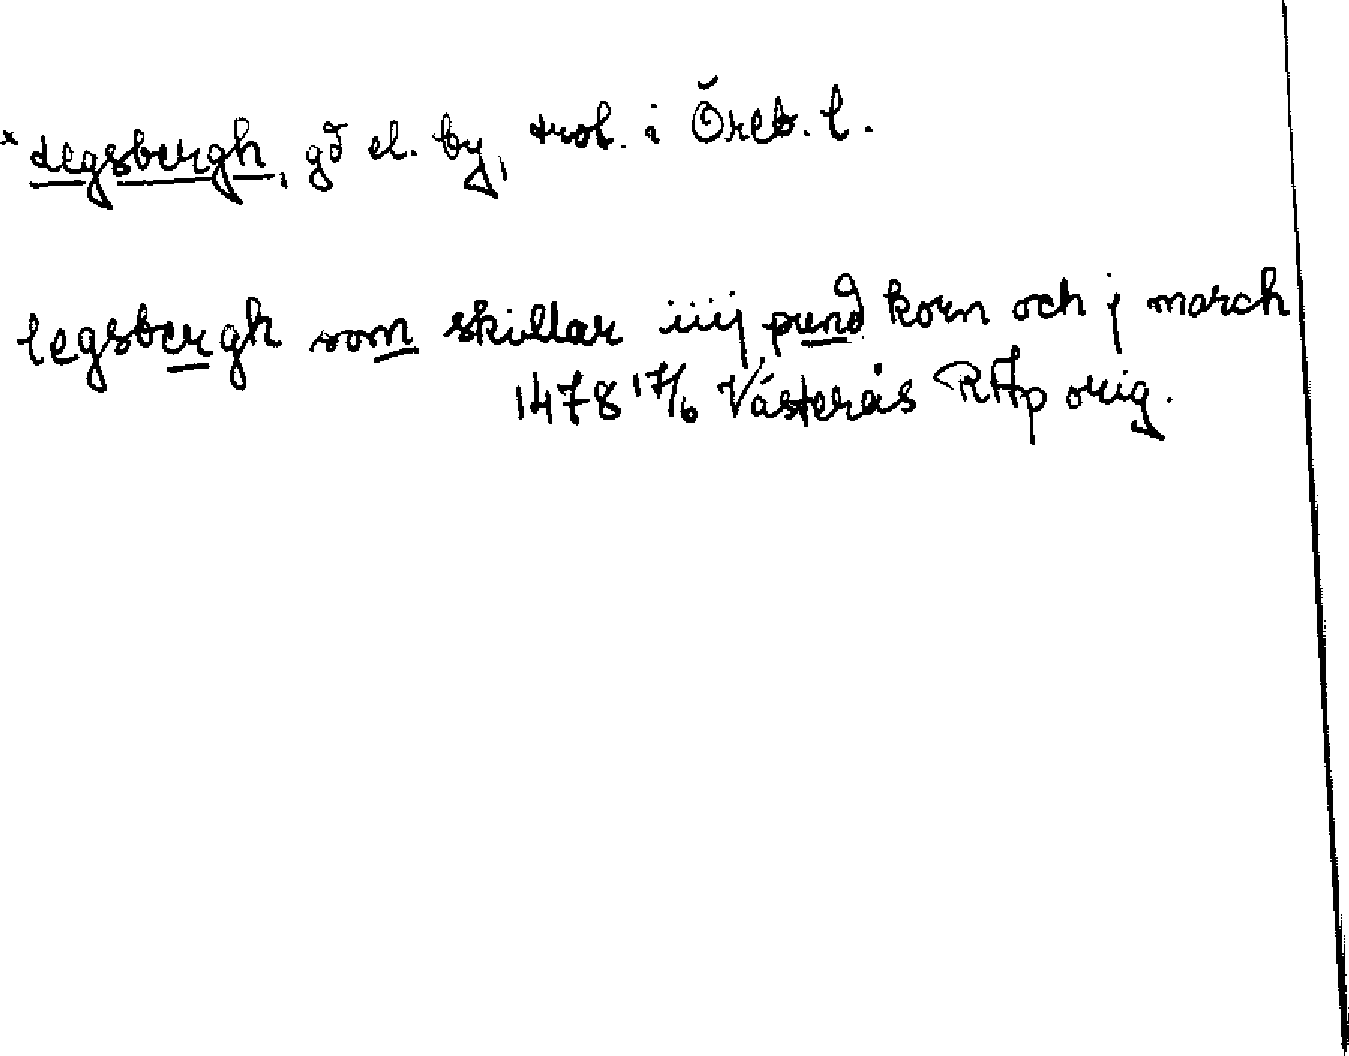 * Legsbergh, gd el. by, trol. i Öreb. l.
legsbergh som skillar iiij pund korn och j march
1478 17/6 Västerås RAp orig.